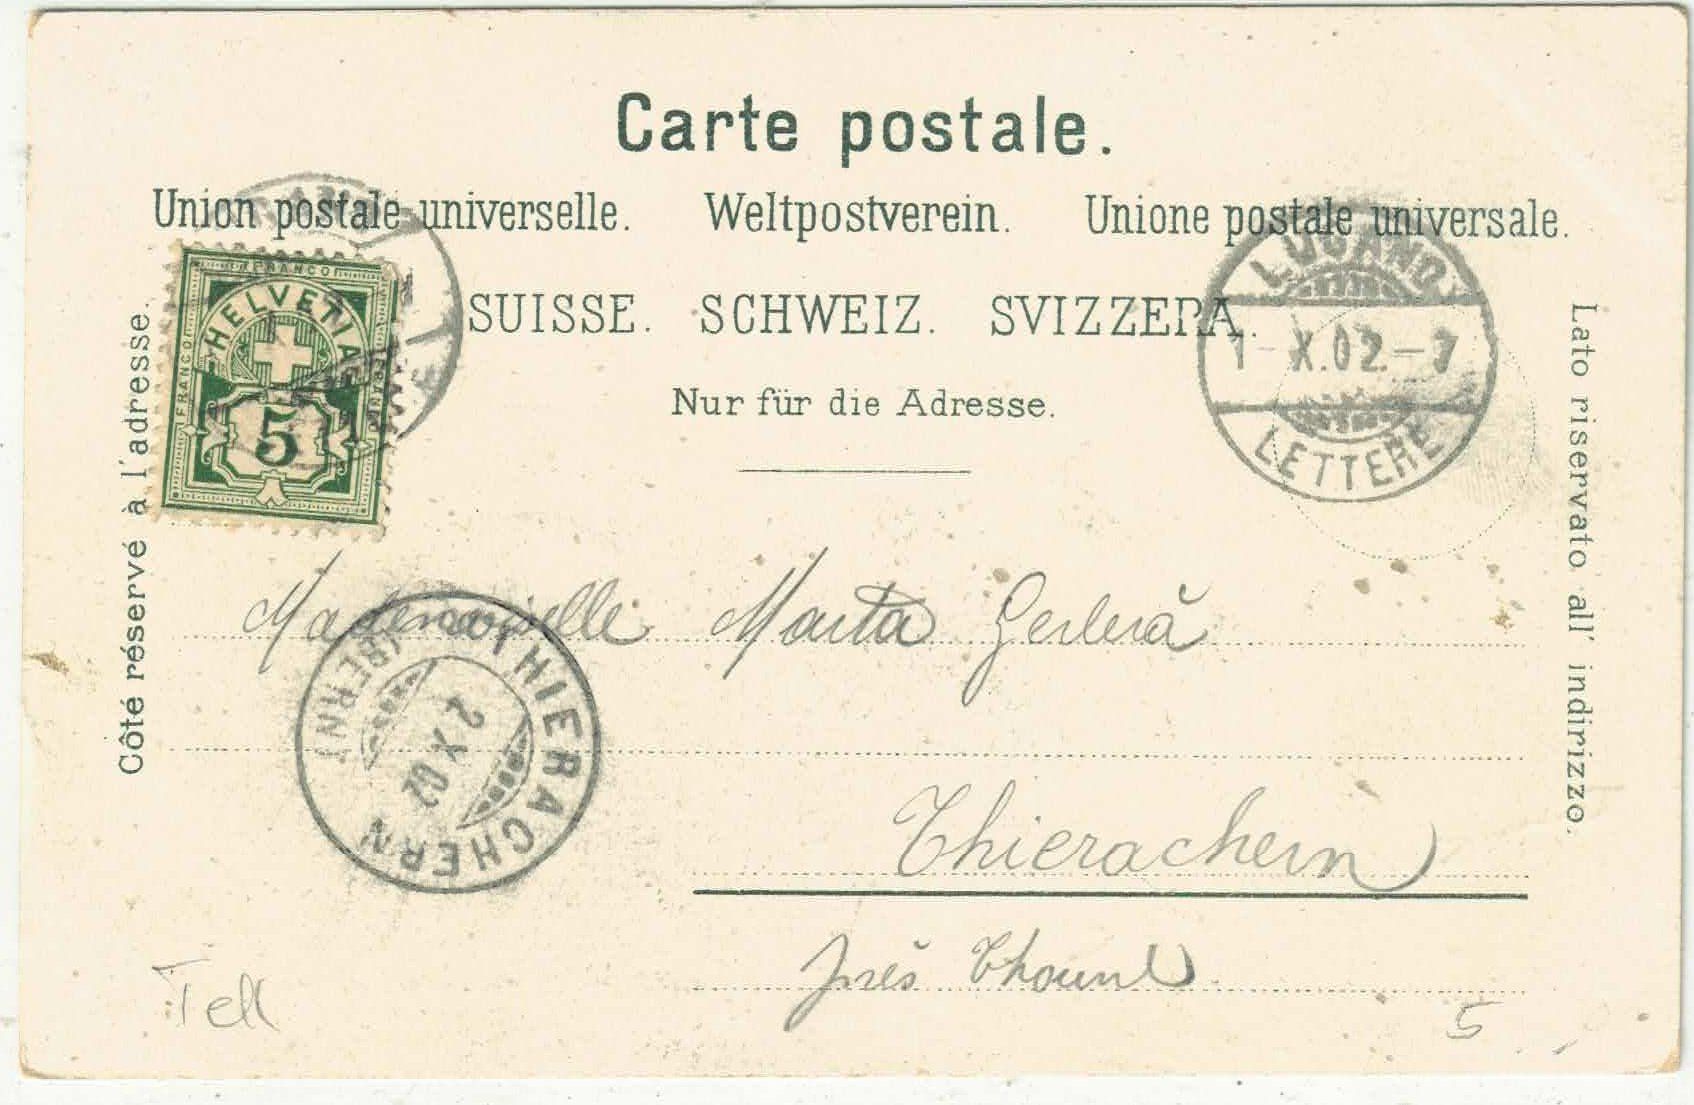 Carte postale.
Union postale universelle. Weltpostverein. Unione postale universale.
SUISSE. SCHWEIZ. SVIZZERA.
Nur für die Adresse.
Côté réservé à l'adresse.
Lato riservato all' indirizzo.
FRANCO
FRANCO
FRANCO
HELVETIA
5
LUGANO
1-X.02.-7
LETTERE
Mademoiselle Marta
THIERACHERN
(BERN)
2 X 02
Thierachern
près Thoune
Tell
5